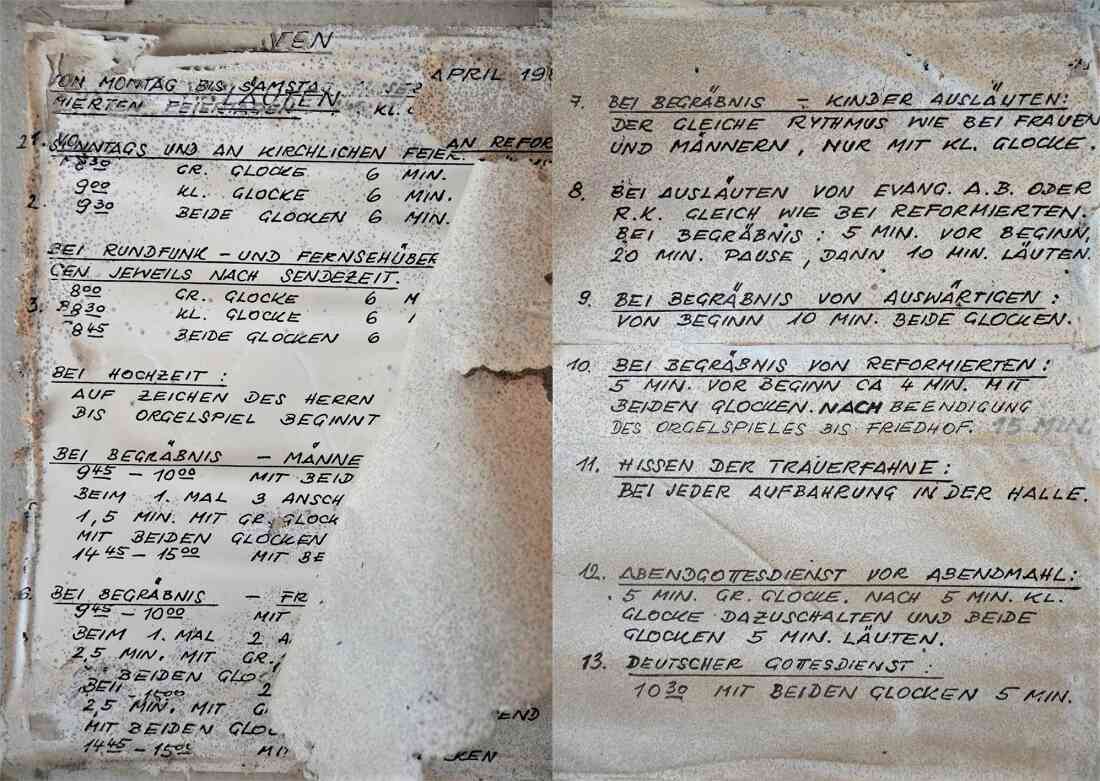 VON MONTAG BIS SAMSTA
APRIL 19
LÄUTEN
MIERTEN FEIERTAGEN KL.
SONNTAGS UND AN KIRCHLICHEN FEIER.
AN REFOR
8 30 GR. GLOCKE 6 MIN.
9 00 KL. GLOCKE 6 MIN.
2. 9 30 BEIDE GLOCKEN 6 MIN.
BEI RUNDFUNK - UND FERNSEHÜBER
GEN JEWEILS NACH SENDEZEIT.
8 00 GR. GLOCKE 6 M
3. 8 30 KL. GLOCKE 6
8 45 BEIDE GLOCKEN 6
BEI HOCHZEIT :
AUF ZEICHEN DES HERRN
BIS ORGELSPIEL BEGINNT
BEI BEGRÄBNIS - MÄNNE
9 45 - 10 00 MIT BEID
BEIM 1. MAL 3 ANSCH
1,5 MIN. MIT GR. GLOCK
MIT BEIDEN GLOCKEN
14 45 - 15 00 MIT BE
6. BEI BEGRÄBNIS - FR
9 45 - 10 00 MIT
BEIM 1. MAL 2 A
2,5 MIN. MIT GR.
BEIDEN GLO
2,5 MIN. MIT G
MIT BEIDEN GLOC
14 45 - 15 00 MI
7. BEI BEGRÄBNIS - KINDER AUSLÄUTEN:
DER GLEICHE RYTHMUS WIE BEI FRAUEN
UND MÄNNERN, NUR MIT KL. GLOCKE.
8. BEI AUSLÄUTEN VON EVANG. A.B. ODER
R.K. GLEICH WIE BEI REFORMIERTEN.
BEI BEGRÄBNIS : 5 MIN. VOR BEGINN,
20 MIN. PAUSE, DANN 10 MIN. LÄUTEN.
9. BEI BEGRÄBNIS VON AUSWÄRTIGEN :
VON BEGINN 10 MIN. BEIDE GLOCKEN.
10. BEI BEGRÄBNIS VON REFORMIERTEN :
5 MIN. VOR BEGINN CA 4 MIN. MIT
BEIDEN GLOCKEN. NACH BEENDIGUNG
DES ORGELSPIELES BIS FRIEDHOF. 15 MIN.
11. HISSEN DER TRAUERFAHNE :
BEI JEDER AUFBAHRUNG IN DER HALLE.
12. ABENDGOTTESDIENST VOR ABENDMAHL:
5 MIN. GR. GLOCKE. NACH 5 MIN. KL.
GLOCKE DAZUSCHALTEN UND BEIDE
GLOCKEN 5 MIN. LÄUTEN.
13. DEUTSCHER GOTTESDIENST :
10 30 MIT BEIDEN GLOCKEN 5 MIN.